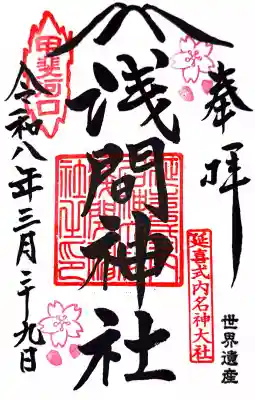 奉拝
世界遺産
延喜式内名神大社
浅間神社
甲斐河口
令和八年三月二十九日